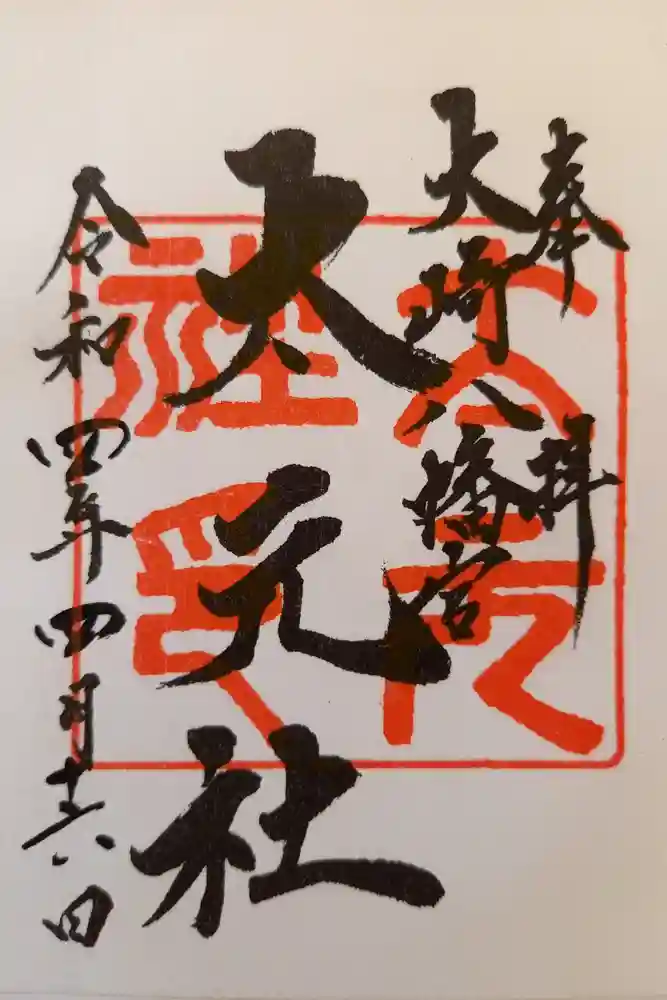 奉拝
大崎八幡宮
太元社
令和四年四月十六日
大元
社印